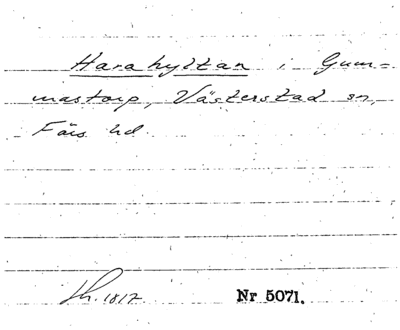 Harahyltan i Gum=
mastorp, Västerstad sn,
Färs hd.
Lh. 1817. Nr 5071.